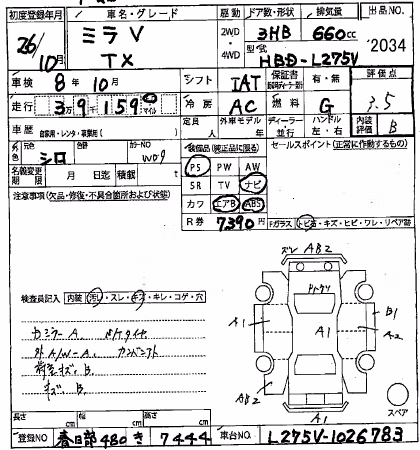 初度登録年月 車名・グレード 駆動 ドア数・形状 排気量 出品NO.
26/10月 ミラV TX 2WD・4WD 3HB 660cc 2034
型式 HBD-L275V
車検 8年10月 シフト IAT 保証書 有・無 評価点
走行 3万9千159 マイル 冷房 AC 燃料 G 3.5
車歴 自家用・レンタ・事業用( ) 定員 人 外車モデル 年 ディーラー・並行 ハンドル 左・右 内装評価 B
元色 色 シロ 色替 カラーNO W09 装備品(純正品に限る) セールスポイント(正常に作動するもの)
PS PW AW
名義変更期限 月 日迄 積載 kg SR TV ナビ
注意事項(欠品・修復・不具合箇所および状態) カワ エアB ABS
R券 7390円 Fガラス トビ石・キズ・ヒビ・ワレ・リペア跡
ズレ AB2
検査員記入 内装 汚れ・スレ・キズ・キレ・コゲ・穴
A1 A1 B1 A2
外A/W-A.
キズ. B.
AB2
A1
スペア
長さ cm 幅 cm 高さ cm
登録NO 春日部480き7444 車台NO. L275V-1026783